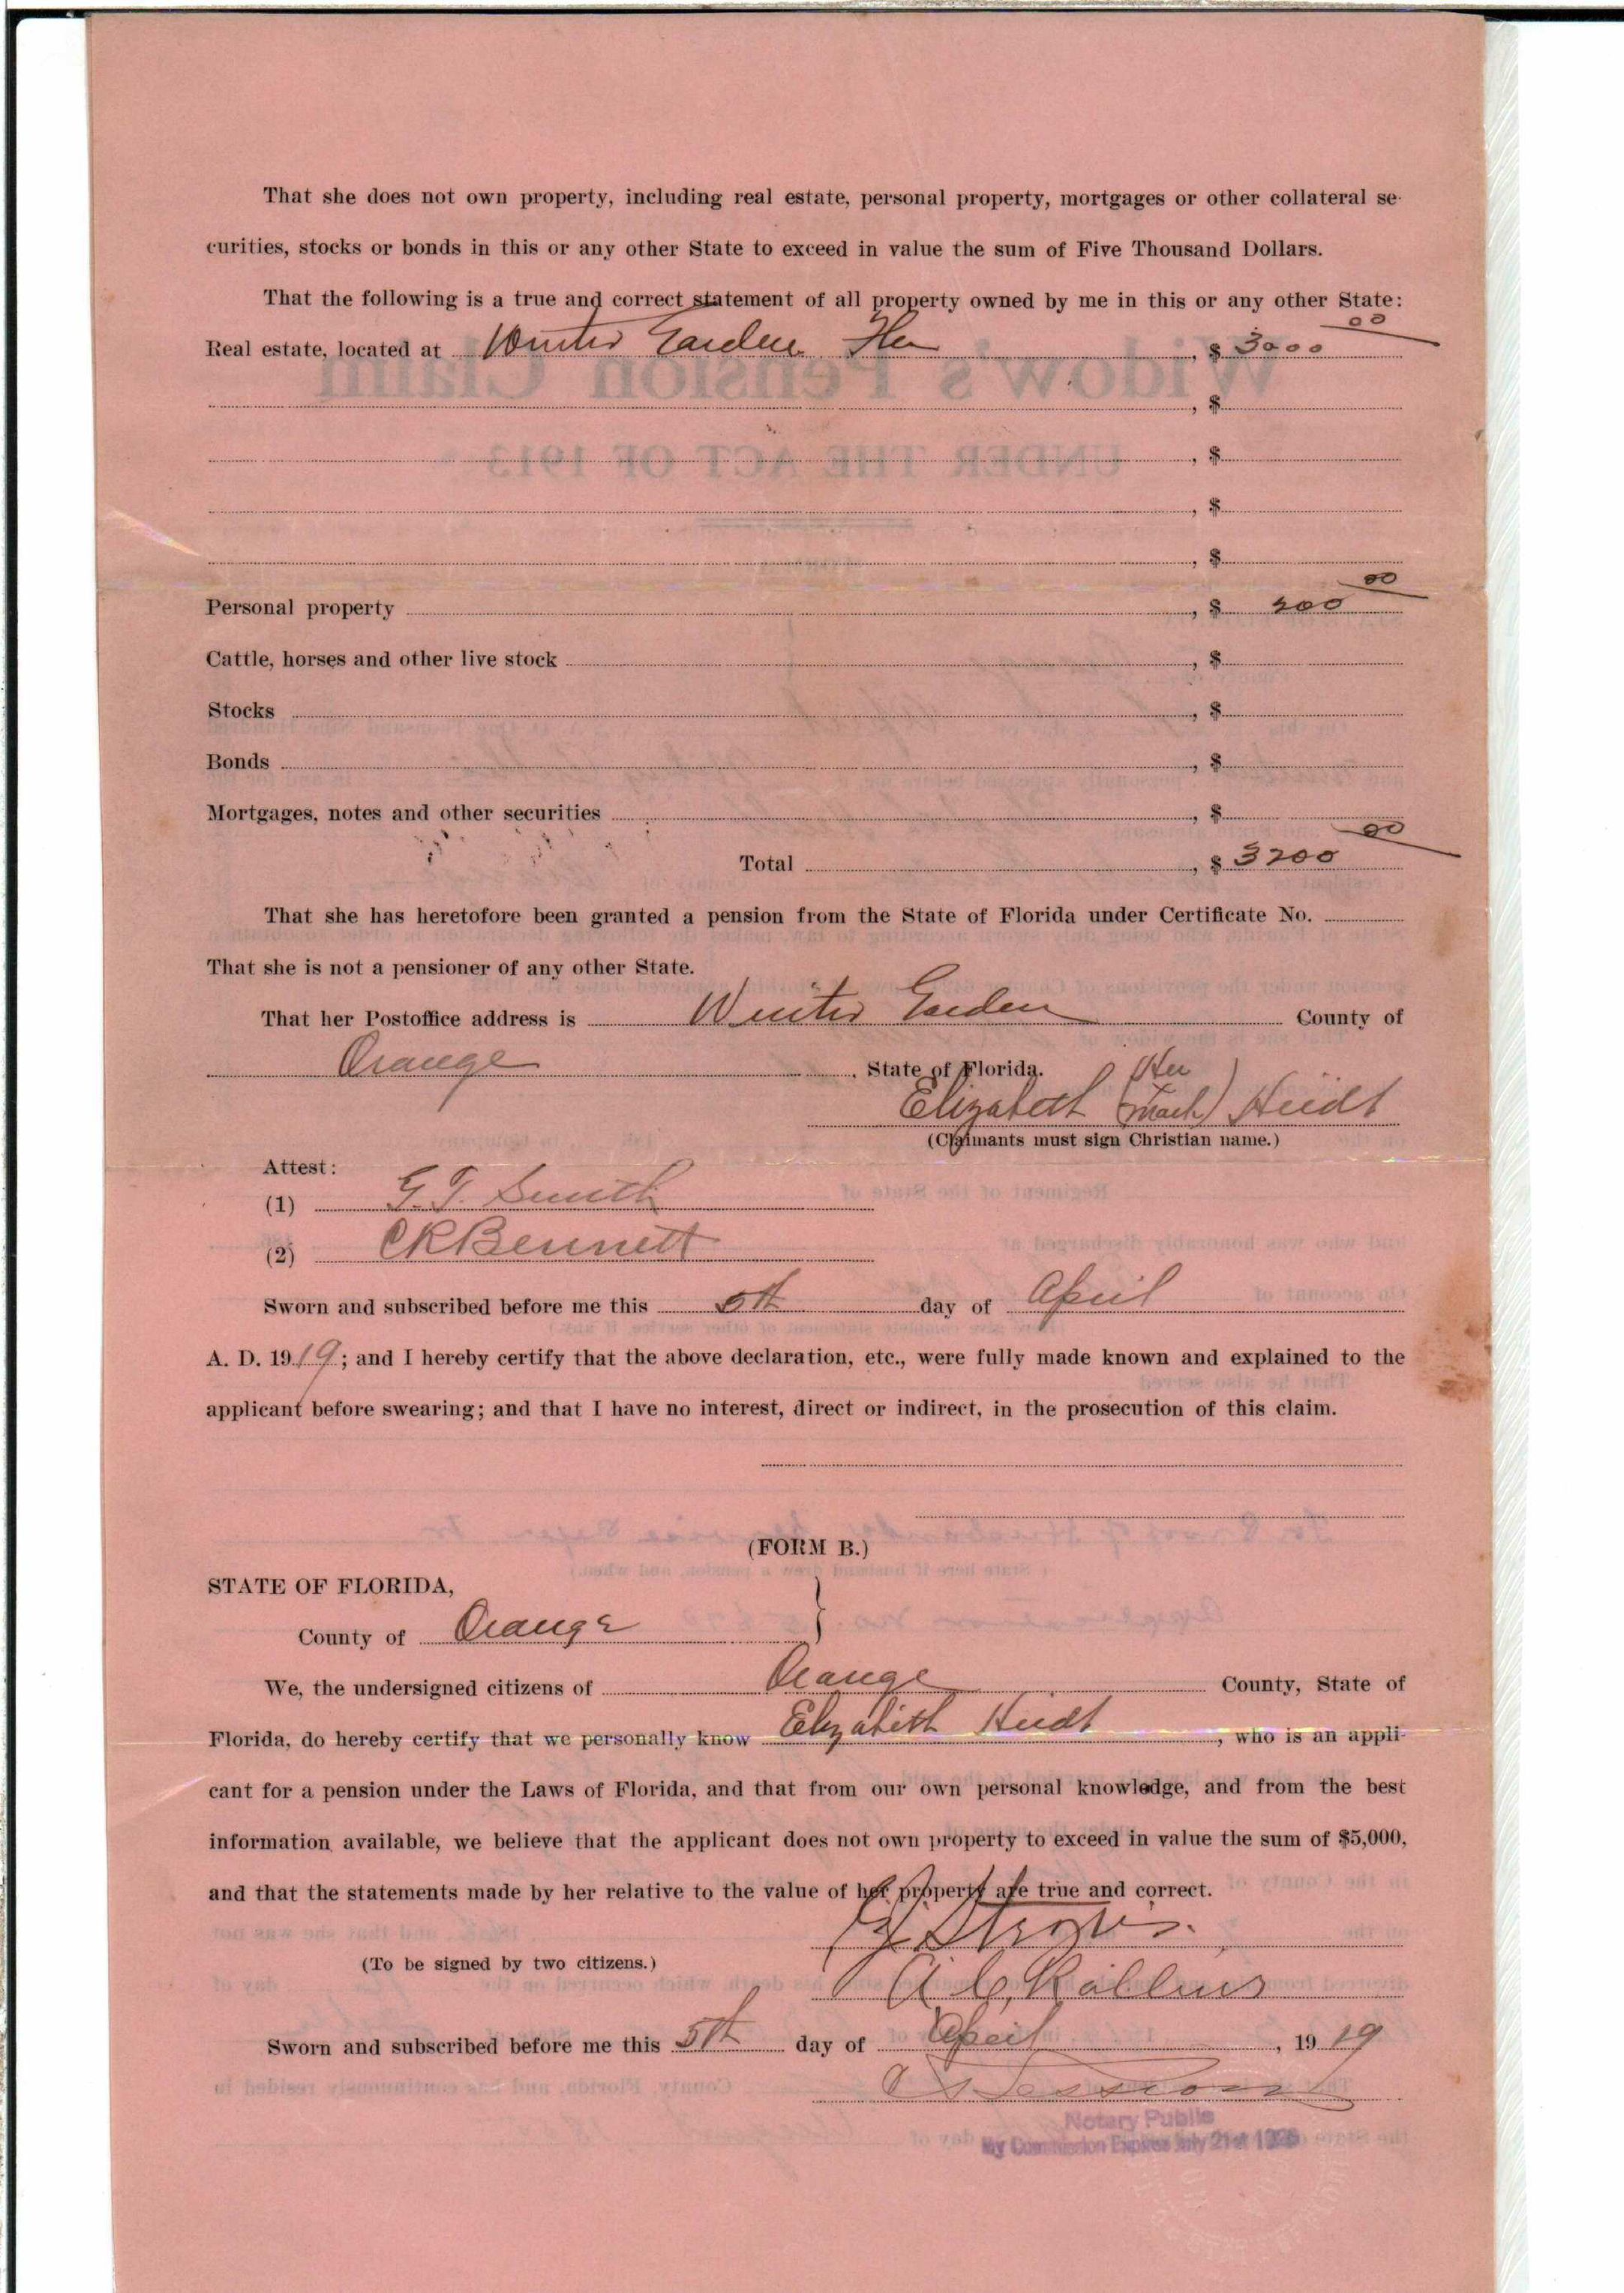 That she does not own property, including real estate, personal property, mortgages or other collateral se-
curities, stocks or bonds in this or any other State to exceed in value the sum of Five Thousand Dollars.
That the following is a true and correct statement of all property owned by me in this or any other State:
Real estate, located at Winter Garden Fla , $ 3000 00
Widow's Pension Claim
, $
UNDER THE ACT OF 1913
, $
, $
, $
Personal property , $ 200 00
Cattle, horses and other live stock , $
Stocks , $
Bonds , $
Mortgages, notes and other securities , $
Total , $ 3200 00
That she has heretofore been granted a pension from the State of Florida under Certificate No.
That she is not a pensioner of any other State.
That her Postoffice address is Winter Garden County of
Orange , State of Florida.
Her
Elizabeth (mark) Heidt
(Claimants must sign Christian name.)
Attest:
(1) G. T. Smith
(2) CR Bennett
Sworn and subscribed before me this 5th day of April
A. D. 1919; and I hereby certify that the above declaration, etc., were fully made known and explained to the
applicant before swearing; and that I have no interest, direct or indirect, in the prosecution of this claim.
(FORM B.)
STATE OF FLORIDA,
County of Orange
We, the undersigned citizens of Orange County, State of
Florida, do hereby certify that we personally know Elizabeth Heidt , who is an appli-
cant for a pension under the Laws of Florida, and that from our own personal knowledge, and from the best
information available, we believe that the applicant does not own property to exceed in value the sum of $5,000,
and that the statements made by her relative to the value of her property are true and correct.
(To be signed by two citizens.)
Sworn and subscribed before me this 5th day of April , 1919
Notary Public
My Commission Expires July 21st